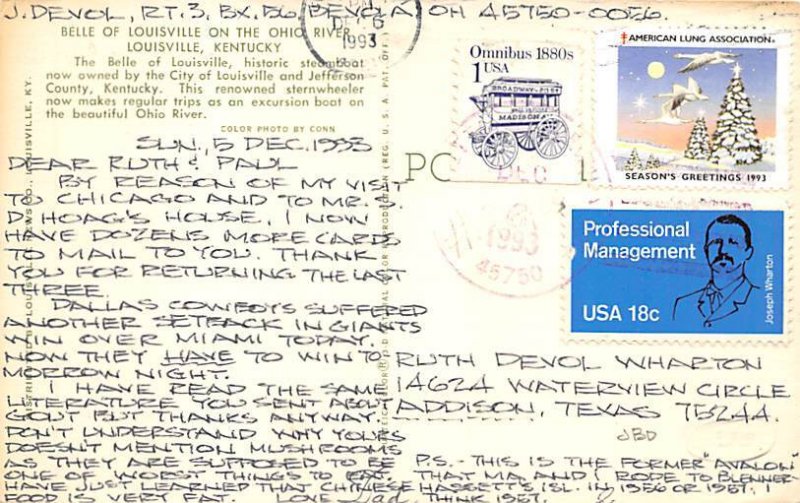 J. DEVOL, RT. 3, BX. 56, DEVOLA, OH 45750-0056
BELLE OF LOUISVILLE ON THE OHIO RIVER
LOUISVILLE, KENTUCKY
The Belle of Louisville, historic steamboat
now owned by the City of Louisville and Jefferson
County, Kentucky. This renowned sternwheeler
now makes regular trips as an excursion boat on
the beautiful Ohio River.
COLOR PHOTO BY CONN
SUN., 5 DEC. 1993
DEAR RUTH & PAUL
BY REASON OF MY VISIT
TO CHICAGO AND TO MR. S.
D. HOAG'S HOUSE, I NOW
HAVE DOZENS MORE CARDS
TO MAIL TO YOU. THANK
YOU FOR RETURNING THE LAST
THREE.
DALLAS COWBOYS SUFFERED
ANOTHER SETBACK IN GIANTS
WIN OVER MIAMI TODAY.
NOW THEY HAVE TO WIN TO
MORROW NIGHT.
I HAVE READ THE SAME
LITERATURE YOU SENT ABOUT
GOUT BUT THANKS ANYWAY.
DON'T UNDERSTAND WHY YOURS
DOESN'T MENTION MUSHROOMS
AS THEY ARE SUPPOSED TO BE
ONE OF WORST THINGS TO EAT.
HAVE JUST LEARNED THAT CHINESE
FOOD IS VERY FAT. LOVE Dad
P.S. - THIS IS THE FORMER "AVALON"
THAT MA AND I RODE TO BLENNER-
HASSETT'S ISL. IN 1956 OR 1957.
THINK 1957.
1993
Omnibus 1880s
1 USA
BROADWAY
MADISON AV
AMERICAN LUNG ASSOCIATION
SEASON'S GREETINGS 1993
PO
DEC
1993
45750
Professional
Management
USA 18c
Joseph Wharton
RUTH DEVOL WHARTON
14624 WATERVIEW CIRCLE
ADDISON, TEXAS 75244
JBD